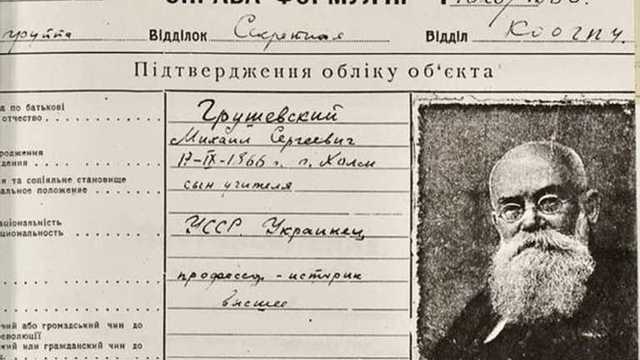 СПРАВА ФОРМУЛЯР
группа Відділок Секретная Відділ КООГПУ.
Підтвердження обліку об'єкта
по батькові
отчество
Грушевский
Михаил Сергеевич
17-IX-1866 г. г. Холм
та соціяльне становище
положение
сын учителя
УССР. Украинец
профессор - историк
высшее
чий або громадський чин до
революції
кий или гражданский чин до